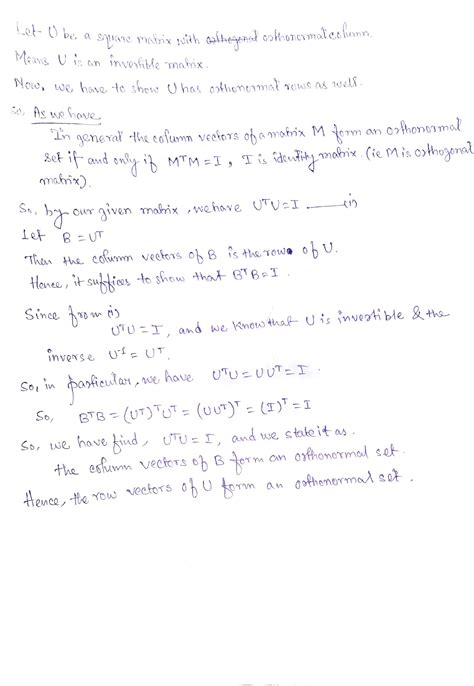 Let U be a square matrix with orthonormal column.
Means U is an invertible matrix.
Now, we have to show U has orthonormal rows as well.
So, As we have
In general the column vectors of a matrix M form an orthonormal
set if and only if MᵀM = I, I is identity matrix. (ie M is orthogonal
matrix).
So, by our given matrix, we have UᵀU = I. ——(i)
Let B = Uᵀ
Then the column vectors of B is the rows of U.
Hence, it suffices to show that BᵀB = I.
Since from (i)
UᵀU = I, and we know that U is invertible & the
inverse U⁻¹ = Uᵀ.
So, in particular, we have UᵀU = UUᵀ = I.
So, BᵀB = (Uᵀ)ᵀUᵀ = (UUᵀ)ᵀ = (I)ᵀ = I
So, we have find, UᵀU = I, and we state it as.
the column vectors of B form an orthonormal set.
Hence, the row vectors of U form an orthonormal set.